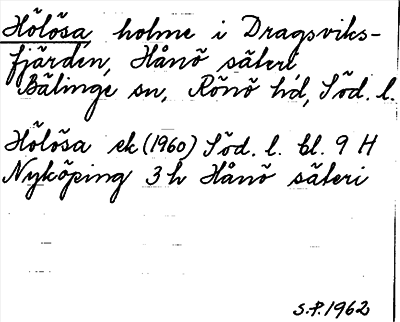 Hölösa, holme i Dragsviks-
fjärden, Hånö säteri
Bälinge sn, Rönö hd, Söd. l.
Hölösa ek (1960) Söd. l. bl. 9 H
Nyköping 3 h Hånö säteri
S.P. 1962